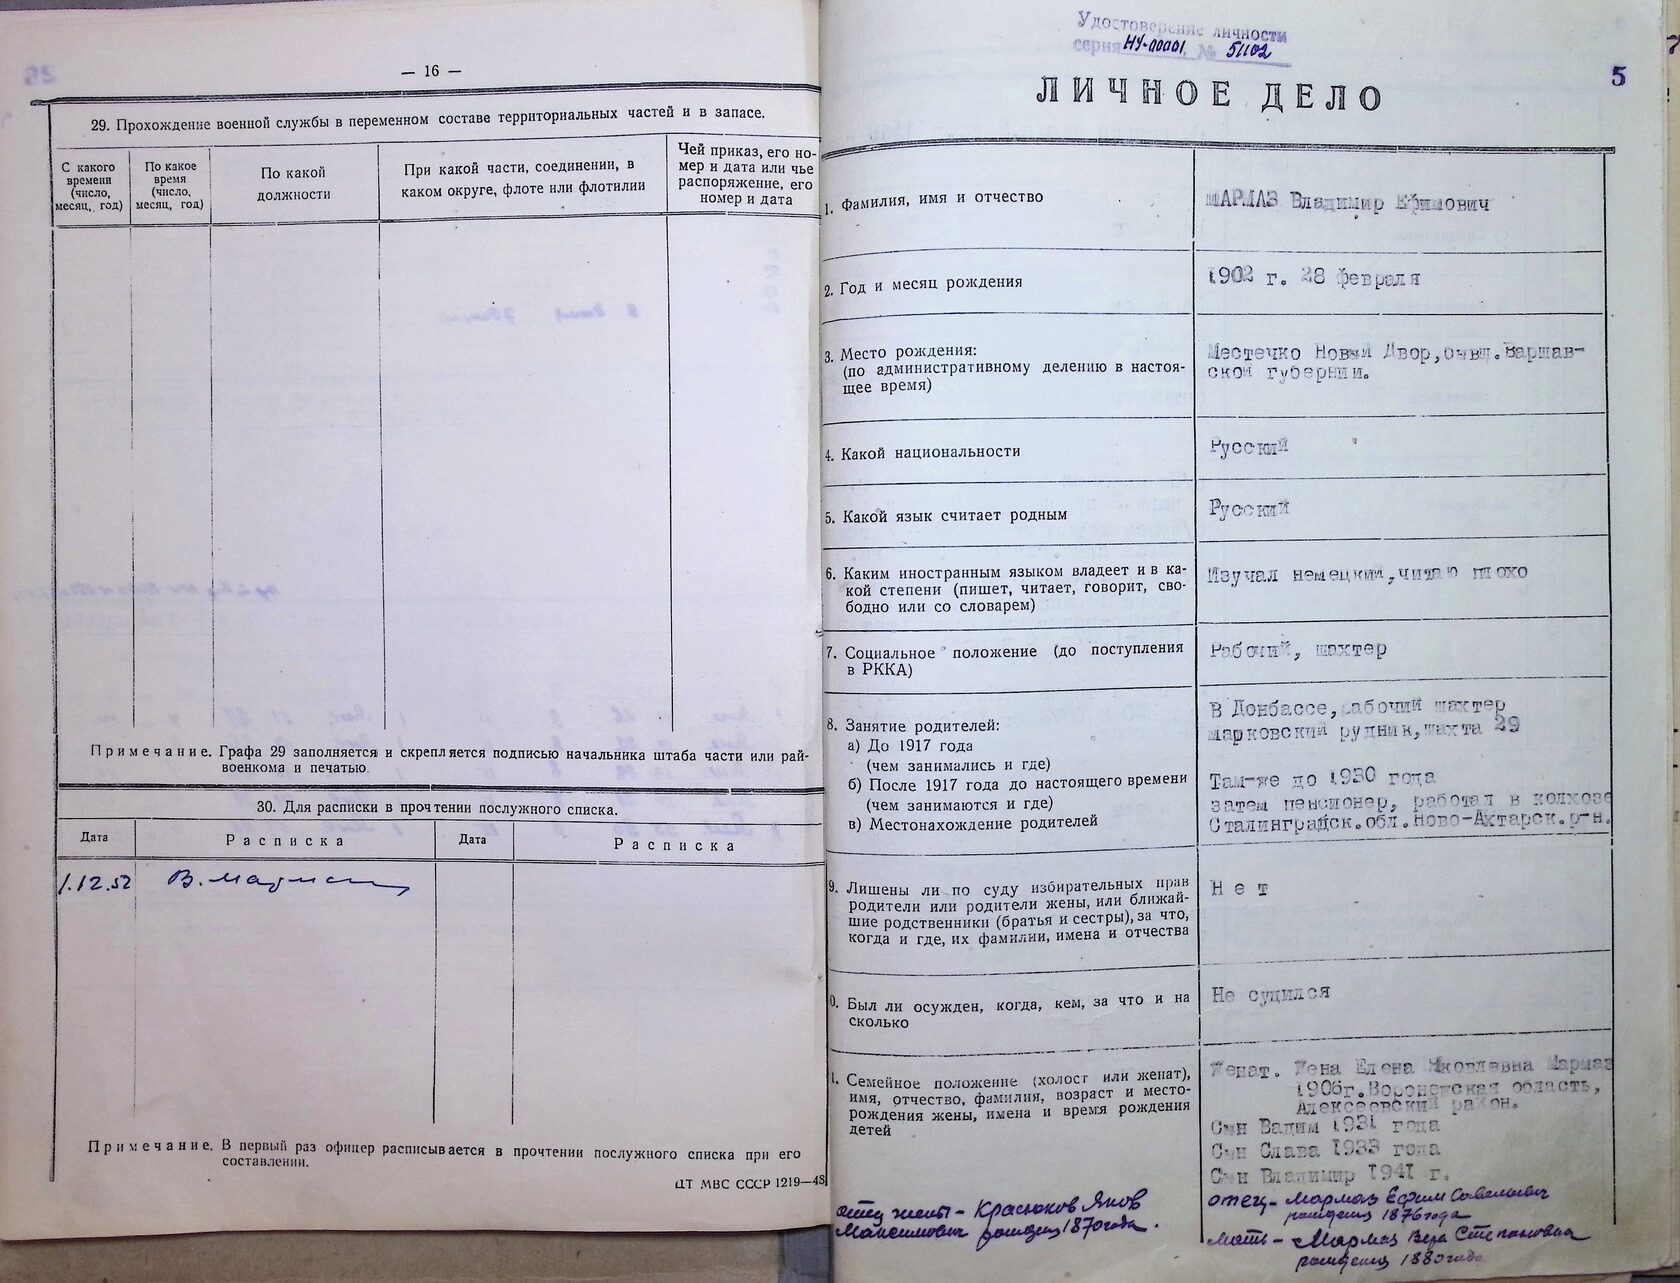 — 16 —
29. Прохождение военной службы в переменном составе территориальных частей и в запасе.
С какого
времени
(число,
месяц, год)
По какое
время
(число,
месяц, год)
По какой
должности
При какой части, соединении, в
каком округе, флоте или флотилии
Чей приказ, его но-
мер и дата или чье
распоряжение, его
номер и дата
Примечание. Графа 29 заполняется и скрепляется подписью начальника штаба части или рай-
военкома и печатью.
30. Для расписки в прочтении послужного списка.
Дата
Расписка
Дата
Расписка
1.12.52
Примечание. В первый раз офицер расписывается в прочтении послужного списка при его
составлении.
ЦТ МВС СССР 1219—48
Удостоверение личности
серия НУ-00001 № 51102
5
ЛИЧНОЕ ДЕЛО
1. Фамилия, имя и отчество
МАРМАЗ Владимир Ефимович
2. Год и месяц рождения
1902 г. 28 февраля
3. Место рождения:
(по административному делению в настоя-
щее время)
Местечко Новый Двор, бывш. Варшав-
ской губернии.
4. Какой национальности
Русский
5. Какой язык считает родным
Русский
6. Каким иностранным языком владеет и в ка-
кой степени (пишет, читает, говорит, сво-
бодно или со словарем)
Изучал немецкий, читаю плохо
7. Социальное положение (до поступления
в РККА)
Рабочий, шахтер
8. Занятие родителей:
а) До 1917 года
(чем занимались и где)
б) После 1917 года до настоящего времени
(чем занимаются и где)
в) Местонахождение родителей
В Донбассе, рабочий шахтер
Марковский рудник, шахта 29
Там-же до 1930 года
затем пенсионер, работал в колхозе
Сталинградск. обл. Ново-Ахтарск. р-н.
9. Лишены ли по суду избирательных прав
родители или родители жены, или ближай-
шие родственники (братья и сестры), за что,
когда и где, их фамилии, имена и отчества
Нет
0. Был ли осужден, когда, кем, за что и на
сколько
Не судился
1. Семейное положение (холост или женат),
имя, отчество, фамилия, возраст и место-
рождения жены, имена и время рождения
детей
Женат. Жена Елена Яковлевна Мармаз
1906г. Воронежская область,
Алексеевский район.
Сын Вадим 1931 года
Сын Слава 1933 года
Сын Владимир 1941 г.
отец - Мармаз Ефим Савельевич
рождения 1876 года
Мать - Мармаз Вера Степановна
рождения 1880 года
отец жены - Красюков Яков
Максимович рожден 1870 года.